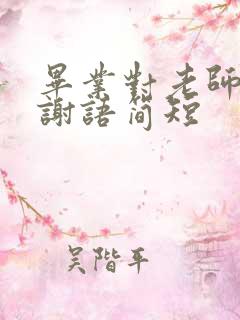 畢業對老師
謝語簡短
吴階平